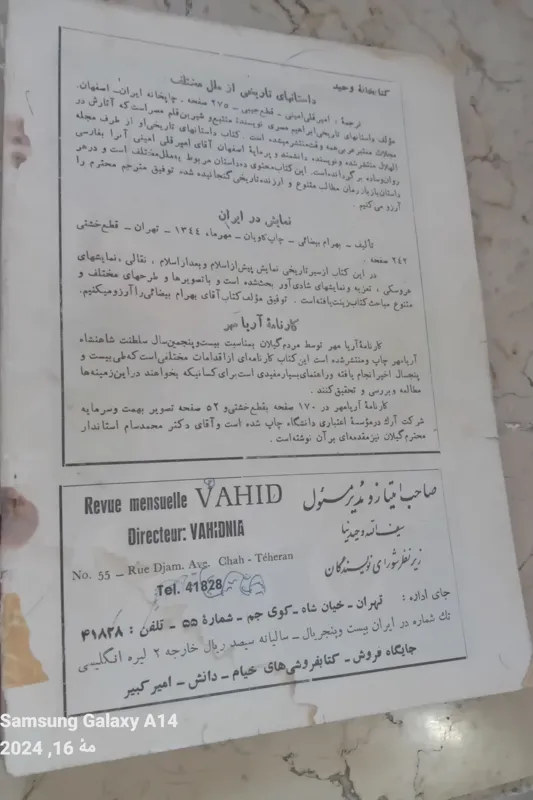 کتابخانهٔ وحید
داستانهای تاریخی از ملل مختلف
ترجمهٔ : امیرقلی امینی - قطع جیبی - ۲۷۵ صفحه - چاپخانه ایران - اصفهان.
مؤلف داستانهای تاریخی ابراهیم مصری نویسندهٔ متتبع و شیرین قلم مصر است که آثارش در
مجلات معتبر عربی همه وقت منتشر میشده است . کتاب داستانهای تاریخی او از طرف مجله
الهلال منتشر شده و نویسنده دانشمند و پرمایهٔ اصفهان آقای امیرقلی امینی آنرا بفارسی
روان و ساده برگردانده است. این کتاب محتوی ده داستان مربوط به ملل مختلف است و در هر
داستان باز بار رمان مطالب متنوع و ارزنده تاریخی گنجانیده شده توفیق مترجم محترم را
آرزو می کنیم .
نمایش در ایران
تألیف - بهرام بیضائی - چاپ کاویان - مهرماه ۱۳۴۴ - تهران - قطع خشتی
۲۴۲ صفحه .
در این کتاب از سیر تاریخی نمایش پیش از اسلام و بعد از اسلام ، نقالی ، نمایشهای
عروسکی ، تعزیه و نمایشهای شادی آور بحث شده است و با تصویرها و طرحهای مختلف و
متنوع مباحث کتاب زینت یافته است . توفیق مؤلف کتاب آقای بهرام بیضائی را آرزو میکنیم.
کارنامهٔ آریا مهر
کارنامهٔ آریا مهر توسط مردم گیلان بمناسبت بیست و پنجمین سال سلطنت شاهنشاه
آریامهر چاپ و منتشر شده است این کتاب کارنامه ای از اقدامات مختلفی است که طی بیست و
پنجسال اخیر انجام یافته و راهنمای بسیار مفیدی است برای کسانیکه بخواهند در این زمینه ها
مطالعه و بررسی و تحقیق کنند .
کارنامهٔ آریامهر در ۱۷۰ صفحه بقطع خشتی و ۵۲ صفحه تصویر بهمت و سرمایه
شرکت آرک در مؤسسهٔ اعتباری دانشگاه چاپ شده است و آقای دکتر محمد سام استاندار
محترم گیلان نیز مقدمه ای بر آن نوشته است .
صاحب امتیاز و مدیر مسئول
سیف الله وحیدنیا
زیر نظر شورای نویسندگان
Revue mensuelle VAHID
Directeur: VAHIDNIA
No. 55 – Rue Djam. Ave. Chah - Téheran
Tel. 41828
جای اداره : تهران - خیابان شاه - کوی جم - شمارهٔ ۵۵ - تلفن : ۴۱۸۲۸
تک شماره در ایران بیست و پنج ریال - سالیانه سیصد ریال خارجه ۲ لیره انگلیسی
جایگاه فروش - کتابفروشی های خیام - دانش - امیرکبیر
Samsung Galaxy A14
مهٔ 16, 2024